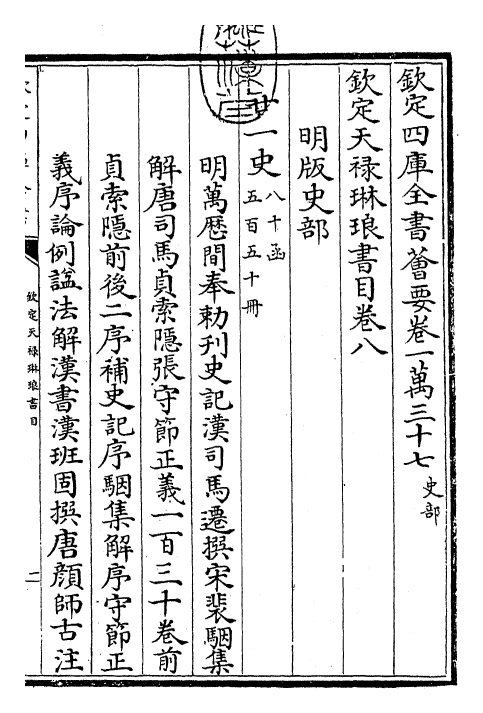 欽定四庫全書薈要卷一萬三十七 史部
欽定天祿琳琅書目卷八
明版史部
廿一史 八十函 五百五十冊
明萬歷間奉勅刊史記漢司馬遷撰宋裴駰集
解唐司馬貞索隱張守節正義一百三十卷前
貞索隱前後二序補史記序駰集解序守節正
義序論例諡法解漢書漢班固撰唐顏師古注
欽定天祿琳琅書目
二